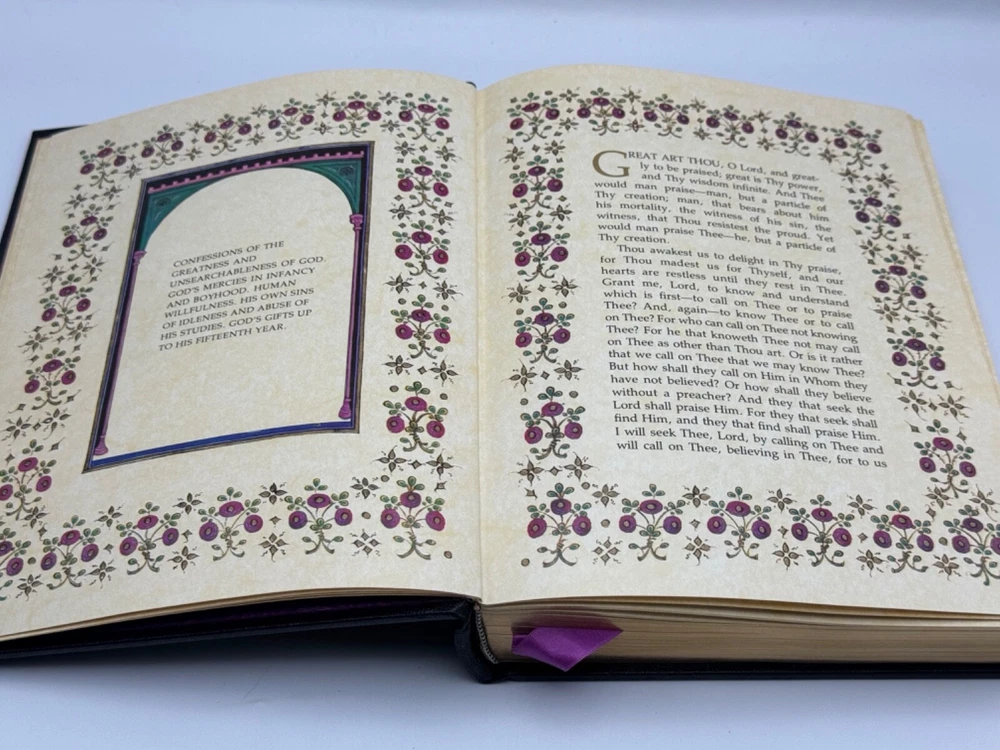 CONFESSIONS OF THE
GREATNESS AND
UNSEARCHABLENESS OF GOD.
GOD'S MERCIES IN INFANCY
AND BOYHOOD. HUMAN
WILLFULNESS. HIS OWN SINS
OF IDLENESS AND ABUSE OF
HIS STUDIES. GOD'S GIFTS UP
TO HIS FIFTEENTH YEAR.
GREAT ART THOU, O Lord, and great-
ly to be praised; great is Thy power,
and Thy wisdom infinite. And Thee
would man praise—man, but a particle of
Thy creation; man, that bears about him
his mortality, the witness of his sin, the
witness, that Thou resistest the proud. Yet
would man praise Thee—he, but a particle of
Thy creation.
Thou awakest us to delight in Thy praise,
for Thou madest us for Thyself, and our
hearts are restless until they rest in Thee.
Grant me, Lord, to know and understand
which is first—to call on Thee or to praise
Thee? And, again—to know Thee or to call
on Thee? For who can call on Thee not knowing
Thee? For he that knoweth Thee not may call
on Thee as other than Thou art. Or is it rather
that we call on Thee that we may know Thee?
But how shall they call on Him in Whom they
have not believed? Or how shall they believe
without a preacher? And they that seek the
Lord shall praise Him. For they that seek shall
find Him, and they that find shall praise Him.
I will seek Thee, Lord, by calling on Thee and
will call on Thee, believing in Thee, for to us